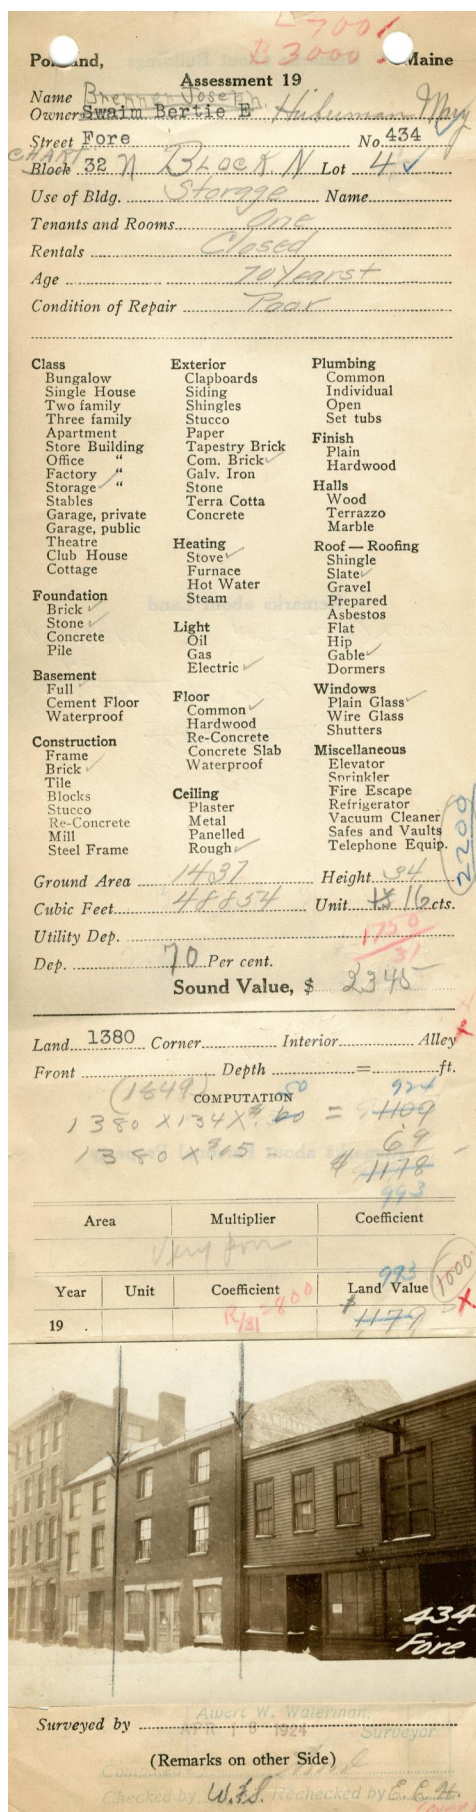 L 700
B 3000
Portland, Maine
Assessment 19
Name Brenner Joseph
Owner Swaim Bertie E Huberman May
Street Fore No. 434
CHART Block 32 N BLOCK. N Lot 4
Use of Bldg. Storage Name
Tenants and Rooms One
Rentals Closed
Age 70 Years +
Condition of Repair Poor
Class
Bungalow
Single House
Two family
Three family
Apartment
Store Building
Office "
Factory "
Storage ✓ "
Stables
Garage, private
Garage, public
Theatre
Club House
Cottage
Foundation
Brick ✓
Stone ✓
Concrete
Pile
Basement
Full ✓
Cement Floor
Waterproof
Construction
Frame
Brick ✓
Tile
Blocks
Stucco
Re-Concrete
Mill
Steel Frame
Exterior
Clapboards
Siding
Shingles
Stucco
Paper
Tapestry Brick
Com. Brick ✓
Galv. Iron
Stone
Terra Cotta
Concrete
Heating
Stove ✓
Furnace
Hot Water
Steam
Light
Oil
Gas
Electric ✓
Floor
Common ✓
Hardwood
Re-Concrete
Concrete Slab
Waterproof
Ceiling
Plaster
Metal
Panelled
Rough ✓
Plumbing
Common
Individual
Open
Set tubs
Finish
Plain
Hardwood
Halls
Wood
Terrazzo
Marble
Roof — Roofing
Shingle
Slate ✓
Gravel
Prepared
Asbestos
Flat
Hip
Gable ✓
Dormers
Windows
Plain Glass ✓
Wire Glass
Shutters
Miscellaneous
Elevator
Sprinkler
Fire Escape
Refrigerator
Vacuum Cleaner
Safes and Vaults
Telephone Equip.
2200
Ground Area 1437 Height 34
Cubic Feet 48854 Unit 16 cts.
Utility Dep. 1750
31
Dep. 70 Per cent.
Sound Value, $ 2345
Land 1380 Corner Interior Alley
Front Depth = ft.
(1849) COMPUTATION 50 924
1380 X 134 X $.60 = 1109
69
1380 X $.05 = $ 1178
993
Area Multiplier Coefficient
Very poor
993 1000
Year Unit Coefficient Land Value
R/31 - 800
19 . $ 1179
434
Fore
Albert W. Waterman,
Surveyed by APR 1 9 1924 Surveyor
(Remarks on other Side)
Checked by W.F.S. Rechecked by E. E. H.